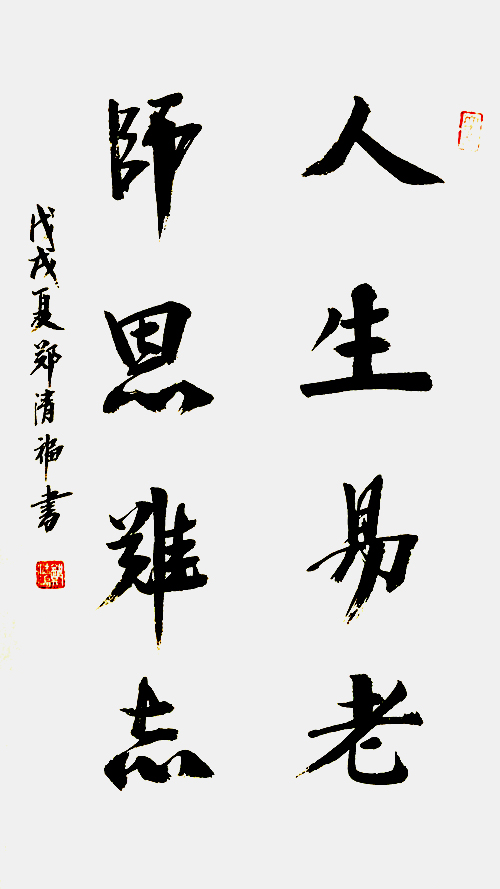 人生易老
師恩難志
戊戌夏郑清福書